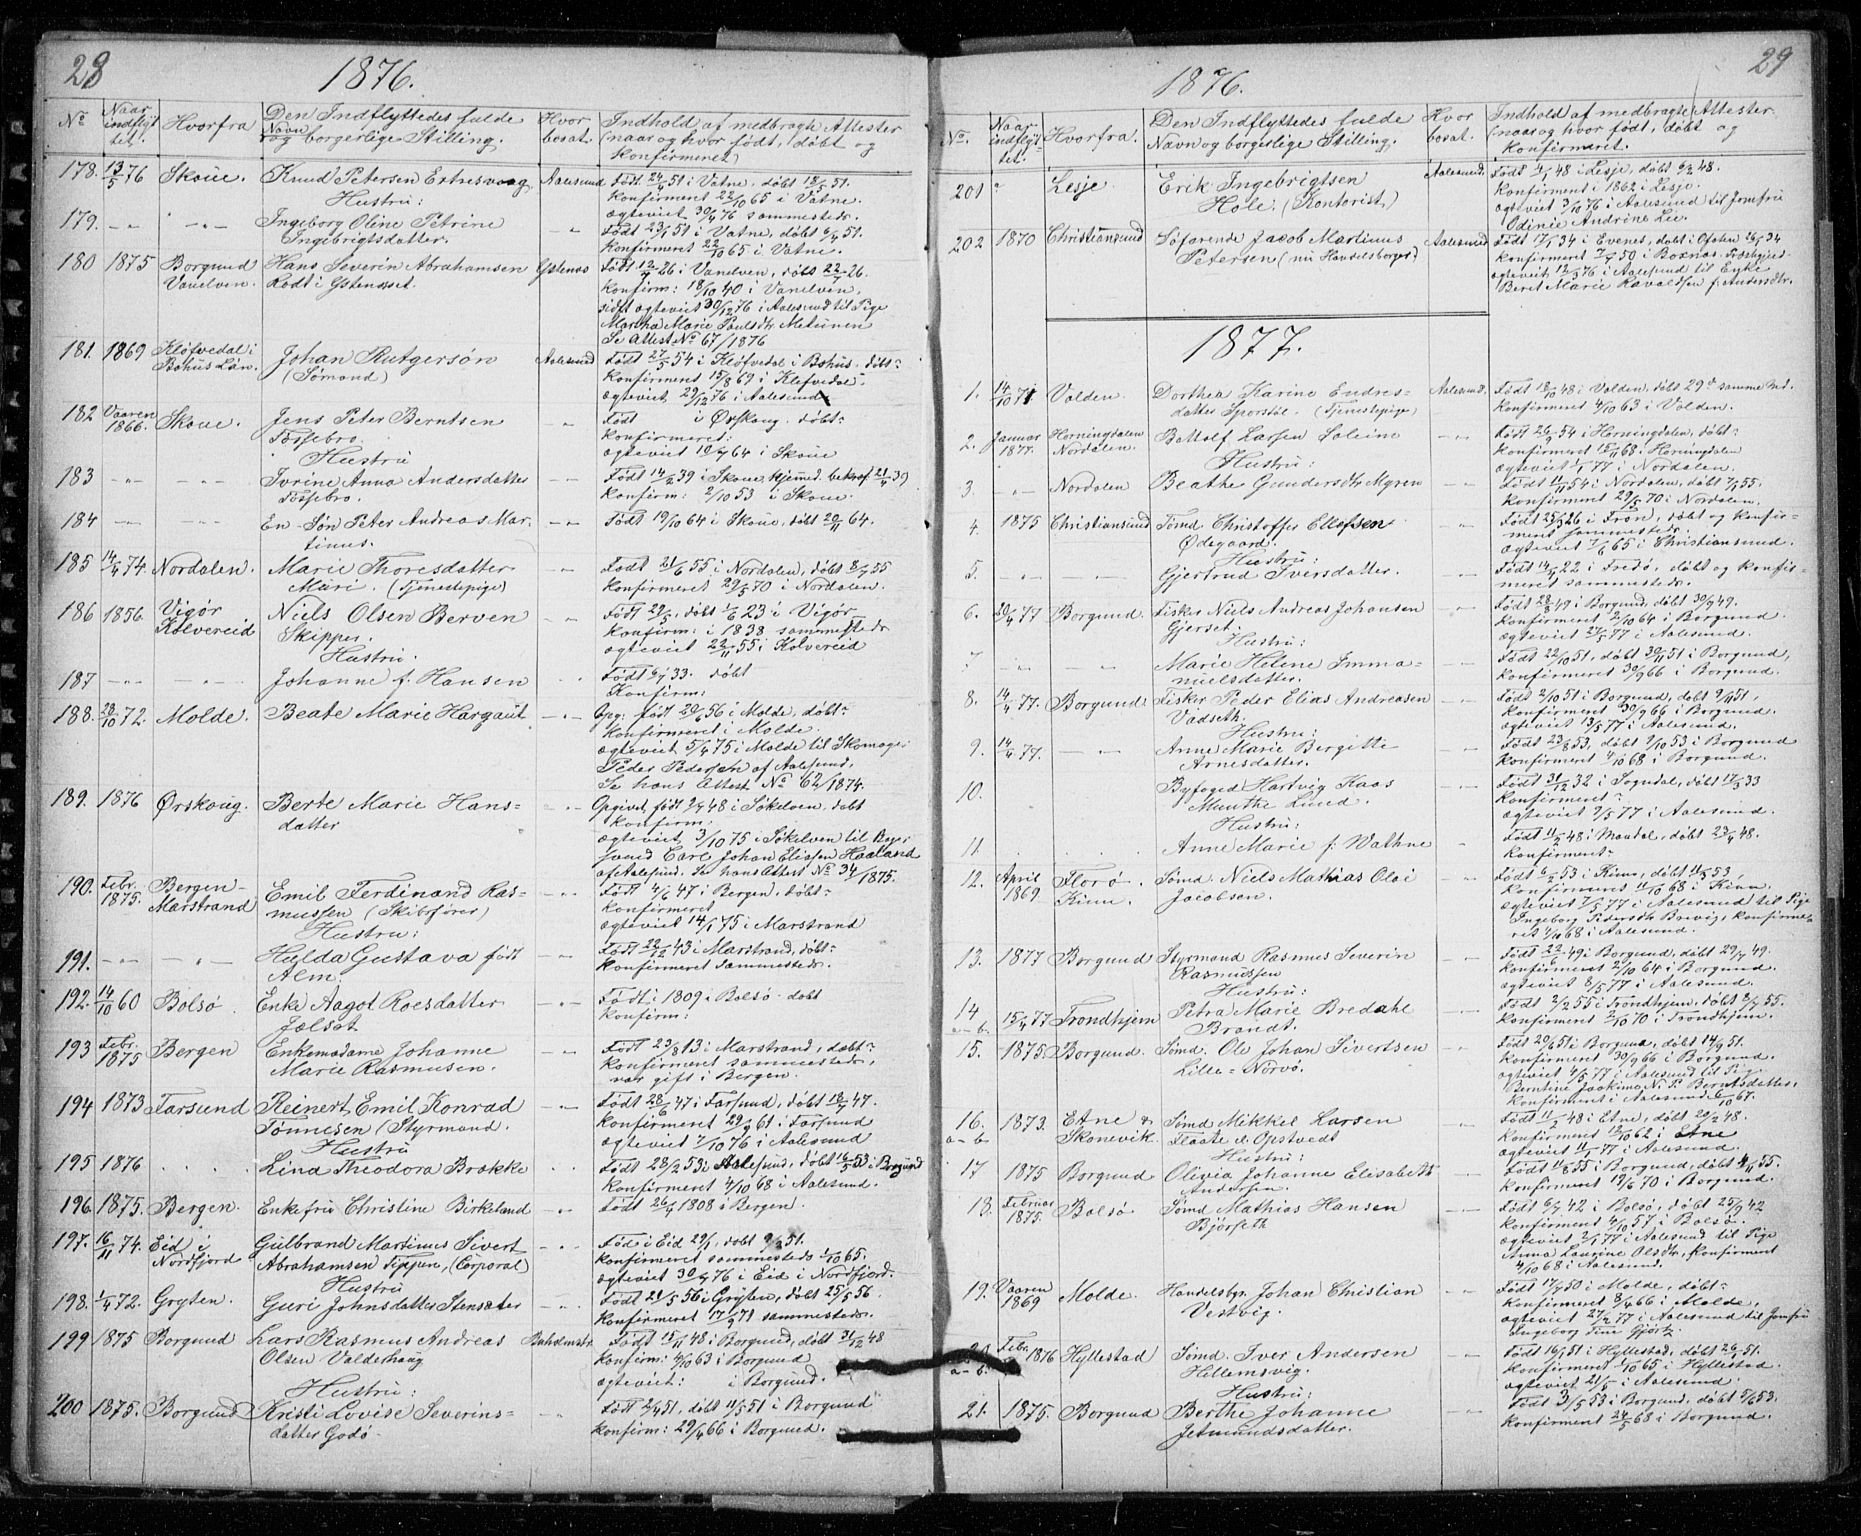 28
1876.
No Naar indflyttet. Hvorfra Den Indflyttedes fulde Navn og borgerlige Stilling. Hvor bosat. Indhold af medbragte Attester (naar og hvor født, døbt og konfirmeret)
178. 13/5 76 Skoue. Knud Petersen Aalesund Født 24/4 51 i Vatne, døbt 18/5 51.
Hustru: Konfirmeret 22/10 65 i Vatne.
ægteviet 30/4 76 sammesteds.
179. -"- -"- Ingeborg Oline Petrine -"- Født 23/1 51 i Vatne, døbt 6/4 51.
Ingebrigtsdatter. Konfirmeret 22/10 65 i Vatne.
180 1875 Borgund Hans Severin Abrahamsen Ystenæs Født 12/7 26 i Vanelven, døbt 22/7 26.
Vanelven. Rødt i Ystenæset. konfirm: 18/10 40 i Vanelven,
sidst ægteviet 30/12 76 i Aalesund til Pige
Martha Marie Paulsdtr
Se Attest No 67/1876
181. 1869 Kløfvedal i Johan Rutgersøn Aalesund Født 27/5 54 i Kløfvedal i Bohus. døbt-
Bohus Län. (Sømand) Konfirmeret 15/8 69 i Klefvedal.
ægteviet 29/12 76 i Aalesund.
182 Vaaren Skoue. Jens Peter Berntsen -"- Født i Ørskoug. døbt-
1866. Fossebro. konfirmeret:
Hustru ægteviet 10/7 64 i Skoue
183 -"- -"- Ivrine Anna Andersdatter -"- Født 14/2 39 i Skoue, hjemmed. bekræf. 21/4 39
Fossebro. Konfirm: 2/10 53 i Skoue.
184 -"- -"- En Søn Peter Andreas Mar- -"- Født 19/10 64 i Skoue, døbt 20/11 64.
tinus.
185 14/4 74 Nordalen. Marie Thoresdatter -"- Født 21/6 55 i Nordalen, døbt 8/7 55
Muri. (Tjenestepige) Konfirmeret 29/5 70 i Nordalen.
186 1856. Vigør Niels Olsen Berven -"- Født 29/5, døbt 1/6 23 i Vigør
Kolvereid Skipper. Konfirm: i 1838 sammesteds
Hustru. ægteviet 22/11 55 i Kolvereid
187 -"- -"- Johanne f. Hansen -"- Født 6/7 33. døbt
Konfirm:
188. 28/10 72. Molde. Beate Marie Hargaut -"- Opg: født 20/6 56 i Molde, døbt-
konfirmeret i Molde
ægteviet 5/4 75 i Molde til Skomager
Peder Pedersen af Aalesund,
Se hans Attest No 62/1874.
189. 1876 Ørskoug. Berte Marie Hans- -"- Opgivet, født 9/7 48 i Søkelven døbt
datter konfirm:
ægteviet 3/10 75 i Søkelven til
svend Carl Johan Eliasen Haaland
af Aalesund. Se hans Attest No 34/1875.
190. Febr. Bergen- Emil Ferdinand Ras- Født 4/6 47 i Bergen, døbt-
1875. Marstrand mussen (Skibsfører) konfirmeret
Hustru: ægteviet 14/1 75 i Marstrand
191. -"- -"- Hulda Gustava født Født 22/12 43 i Marstrand, døbt-
Alm. konfirmeret sammesteds.
192. 14/10 60 Bolsø Enke Aagot Roesdatter -"- Født i 1809 i Bolsø. døbt
Jølset konfirm:
193 Febr. Bergen Enkemadame Johanne Født 23/8 13 i Marstrand, døbt-
1875 Marie Rasmussen. konfirmeret sammesteds,
var gift i Bergen.
194 1873 Farsund Reinert Emil Konrad Født 28/6 47 i Farsund, døbt 18/7 47.
Tønnesen (Styrmand. konfirmeret 29/9 61 i Farsund
Hustru ægteviet 7/10 76 i Aalesund
195 1876 Lina Theodora Brække Født 28/2 53 i Aalesund, døbt 16/5 53 i Borgund
Konfirmeret 4/10 68 i Aalesund.
196. 1875. Bergen. Enkefru Christine Birkeland -"- Født 26/4 1808 i Bergen.
197. 16/11 74. Eid i Gulbrand Martinus Sivert -"- Født i Eid 29/1, døbt 9/2 51.
Nordfjord Abrahamsen Tippen, (Corporal) konfirmeret sammesteds 1/10 65.
Hustru ægteviet 30/7 76 i Eid i Nordfjord.
198. 1/4 72. Gryten. Guri Johnsdatter Stensæter -"- Født 21/5 56 i Gryten, døbt 25/5 56
konfirmeret 17/9 71 sammesteds.
199 1875 Borgund Lars Rasmus Andreas Født 15/11 48 i Borgund, døbt 31/12 48
Olsen Valderhaug konfirm: 4/10 63 i Borgund
Hustru: ægteviet: i Borgund.
200 1875. Borgund Kristi Lovise Severins- -"- Født 2/4 51, døbt 11/5 51 i Borgund
datter Godø. konfirm: 29/4 66 i Borgund.
29
1876.
No. Naar indflyttet. Hvorfra. Den Indflyttedes fulde Navn og borgerlige Stilling. Hvor bosat. Indhold af medbragte Attester (naar og hvor født, døbt og konfirmeret.
201 " Lesje Erik Ingebrigtsen Aalesund. Født 1/1 48 i Lesje, døbt 6/2 48.
Hole. (Kontorist) Konfirmeret i 1862 i Lesje.
ægteviet 3/10 76 i Aalesund til Jomfru
Odinie Andrine Lie.
202 1870 Christiansund Søfarende Jacob Martinus Aalesund Født 17/1 34 i Evenes, døbt i Ofoten 26/1 34
Petersen (nu Handelsborger) konfirmeret 7/7 50 i
ægteviet 12/5 76 i Aalesund til Enke
Beret Marie Ravaldsen f. Andersdtr.
1877.
1. 14/10 71 Volden Dorthea Karine Endres- Aalesund. Født 18/10 48 i Volden, døbt 29de samme Md.
datter Sporstøl. (Tjenestepige) Konfirmeret 4/10 63 i Volden.
2. Januar Horningdalen Bottolf Larsen -"- Født 26/9 54 i Horningdalen, døbt-
1877. Nordalen. Hustru: konfirmeret 15/11 68 i Horningdalen
ægteviet 1/1 77 i Nordalen.
3. -"- Nordalen Beathe Gundersdtr Myren -"- Født 11/11 54 i Nordalen, døbt 7/1 55.
konfirmeret 29/5 70 i Nordalen.
4. 1875 Christiansund Sømd Christoffer Ellefsen -"- Født 25/3 26 i Fron, døbt og konfir-
Ødegaard. meret sammesteds.
Hustru: ægteviet 7/6 65 i Christiansund.
5. -"- -"- Gjertrud Iversdatter. -"- Født 14/5 22 i Fredø, døbt og konfir-
meret sammesteds.
6. 20/4 77 Borgund. Fisker Niels Andreas Johansen -"- Født 28/8 49 i Borgund, døbt 30/9 49.
Gjerset. konfirmeret 2/10 64 i Borgund.
Hustru: ægteviet 27/5 77 i Aalesund.
7 -"- -"- Marie Helene Imma- -"- Født 22/10 51, døbt 30/11 51 i Borgund,
nielsdatter. konfirmeret 30/9 66 i Borgund.
8. 14/4 77. Borgund. Fisker Peder Elias Andreasen -"- Født 2/10 51 i Borgund, døbt 9/11 51,
Vadseth. Konfirmeret 30/9 66 i Borgund.
Hustru: ægteviet 13/5 77 i Aalesund.
9. 14/4 77. -"- Anne Marie Bergitte -"- Født 23/8 53, døbt 9/10 53 i Borgund
Arnesdatter. konfirmeret 4/10 68 i Borgund.
10. Byfoged Hartvig Kaas Født 31/12 32 i Sogndal, døbt 17/3 33
Munthe Lund. konfirmeret-
Hustru: ægteviet 9/5 77 i Aalesund.
11. Anne Marie f. Wathne Født 11/2 48 i Mandal, døbt 23/4 48.
Konfirmeret-
12. April Florø. Sømd. Niels Mathias Olai -"- Født 6/2 53 i Kinn, døbt 11/3 53,
1869. Kinn. Jacobsen. Konfirmeret 11/10 68 i Kinn
ægteviet 7/5 77 i Aalesund til Pige
Ingeborg Pedersdtr konfirme-
ret 4/10 68 i Aalesund.
13. 1877 Borgund Styrmand Rasmus Severin -"- Født 22/6 49 i Borgund, døbt 29/7 49.
Rasmussen Konfirmeret 2/10 64 i Borgund.
Hustru: ægteviet 8/5 77 i Aalesund.
14 a-b. 15/4 77 Trondhjem Petra Marie Bredahl -"- Født 2/2 55 i Trondhjem, døbt 8/7 55.
Brandt. konfirmeret 2/10 70 i Trondhjem.
15. 1875. Borgund. Sømd. Ole Johan Sivertsen -"- Født 20/6 51 i Borgund, døbt 14/9 51.
Lille-Nørvø. Konfirmeret 30/9 66 i Borgund.
ægteviet 4/5 77 i Aalesund til Pige
Berntine Joakime Berntsdatter,
Konfirmeret i Aalesund 6/10 67.
16. a-b 1873. Etne & Sømd Mikkel Larsen -"- Født 11/2 48 i Etne, døbt 20/2 48.
Skonevik. Flaate el Opstvedt konfirmeret 12/10 62 i Etne
Hustru: ægteviet 11/1 77 i Aalesund
17 1875 Borgund Olivia Johanne Elisabeth -"- Født 11/8 55 i Borgund, døbt 4/11 55.
Andersen. Konfirmeret 19/6 70 i Borgund.
18. Februar Bolsø. Sømd Mathias Hansen -"- Født 6/7 42 i Bolsø, døbt 25/9 42
1875. Bjørseth Konfirmeret 4/10 57 i Bolsø.
ægteviet 2/1 77 i Aalesund til Pige
Anna Laurine Olsdtr, konfirmeret
4/10 68 i Aalesund.
19. Vaaren Molde. Handelsbgr. Johan Christian -"- Født 17/7 50 i Molde, døbt-
1869 Vestvig. Konfirmeret 8/4 66 i Molde,
ægteviet 27/2 77 i Aalesund til Jomfru
Ingeborg Tine Gjørtz.
20. a-b. Febr. 1876 Hyllestad Sømd. Iver Andersen -"- Født 16/5 51 i Hyllestad, døbt 26/5 51.
Hillemsvig. Konfirmeret 1/10 65 i Hyllestad.
Hustru: ægteviet 21/5 i Aalesund.
21. 1875. Borgund Berthe Johanne -"- Født 3/5 53 i Borgund, døbt 5/6 53.
Jetmundsdatter. Konfirmeret 24/5 68 i Borgund.